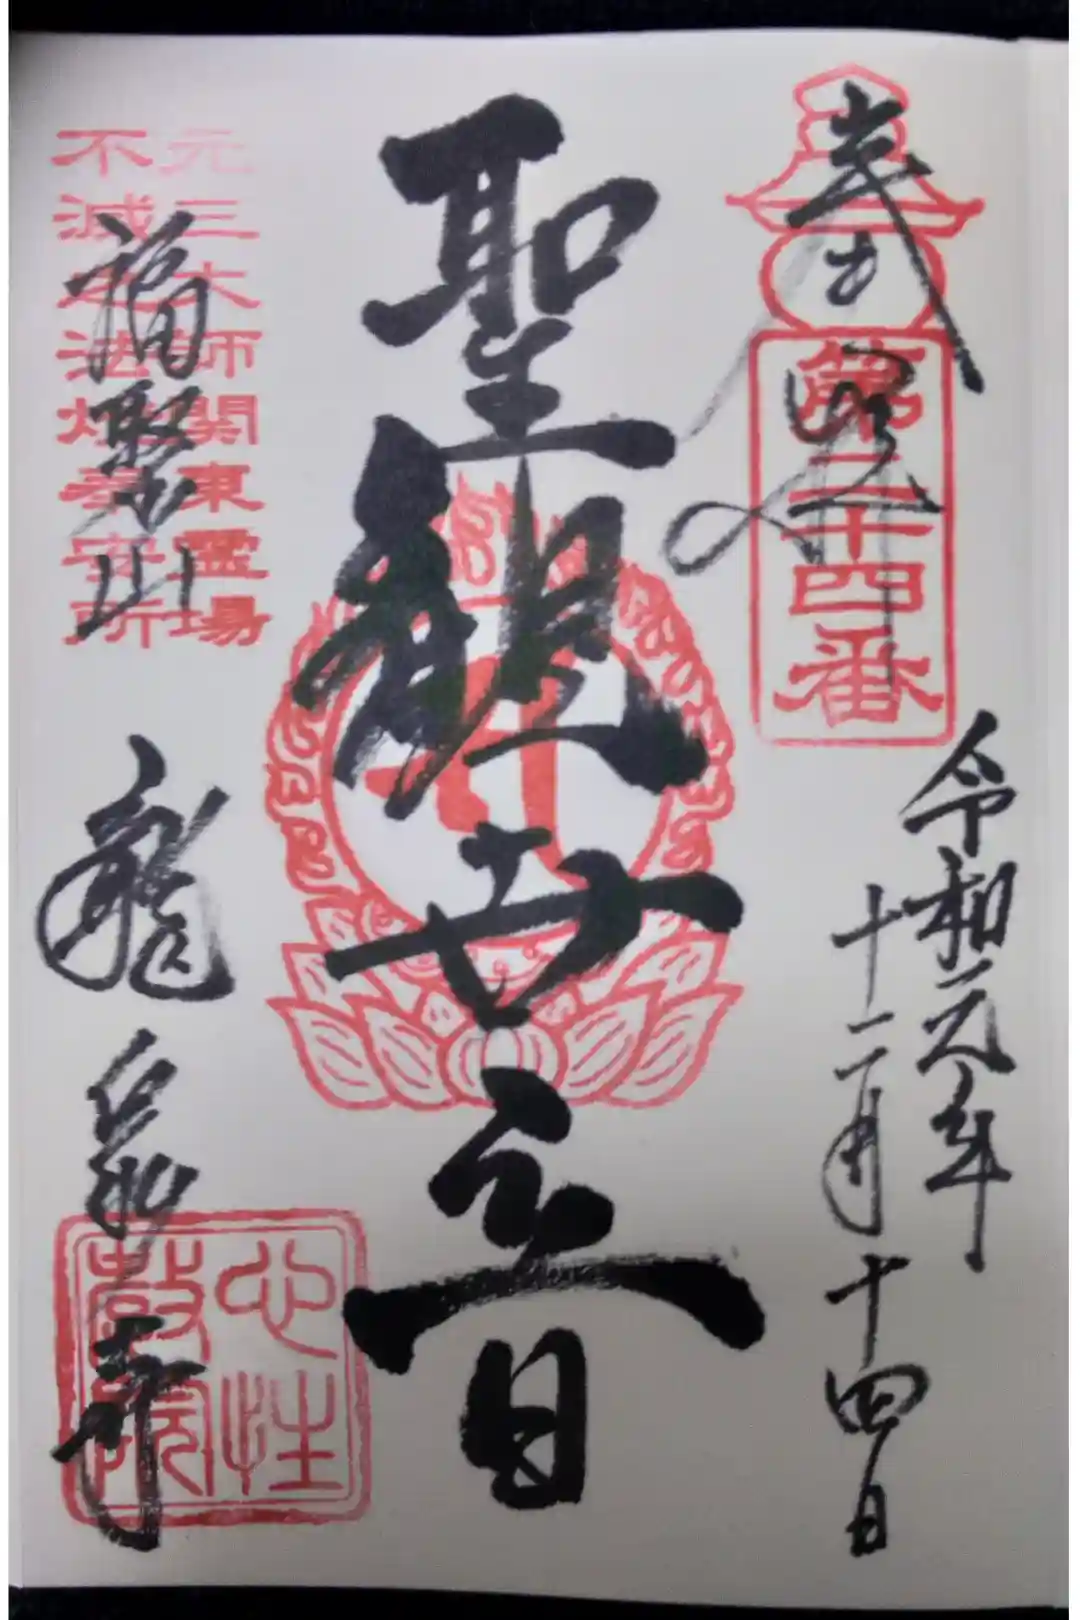 奉拝
第二十四番
令和元年
十二月十四日
聖観世音
元三大師関東霊場
不滅之法燈奉安所
福聚山
龍泉寺
心性
教院